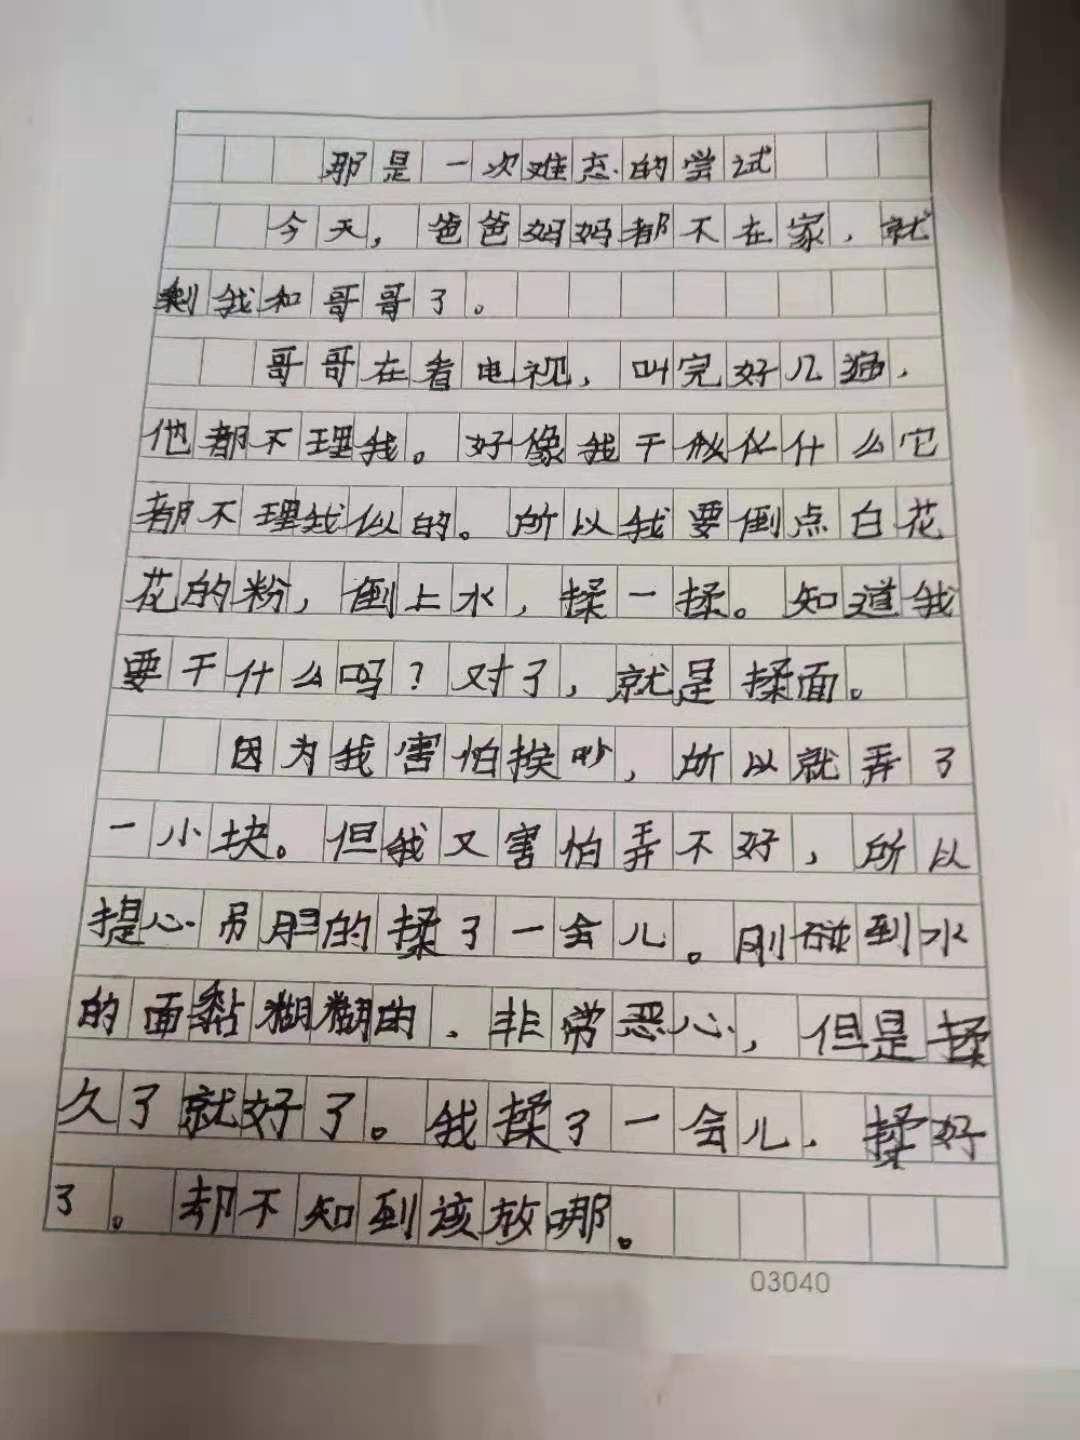 那是一次难忘的尝试
今天，爸爸妈妈都不在家，就
剩我和哥哥了。
哥哥在看电视，叫完好几遍，
他都不理我。好像我干什么它
都不理我似的。所以我要倒点白花
花的粉，倒上水，揉一揉。知道我
要干什么吗？对了，就是揉面。
因为我害怕挨吵，所以就弄了
一小块。但我又害怕弄不好，所以
提心吊胆的揉了一会儿。刚碰到水
的面黏糊糊的，非常恶心，但是揉
久了就好了。我揉了一会儿，揉好
了。却不知到该放哪。
03040